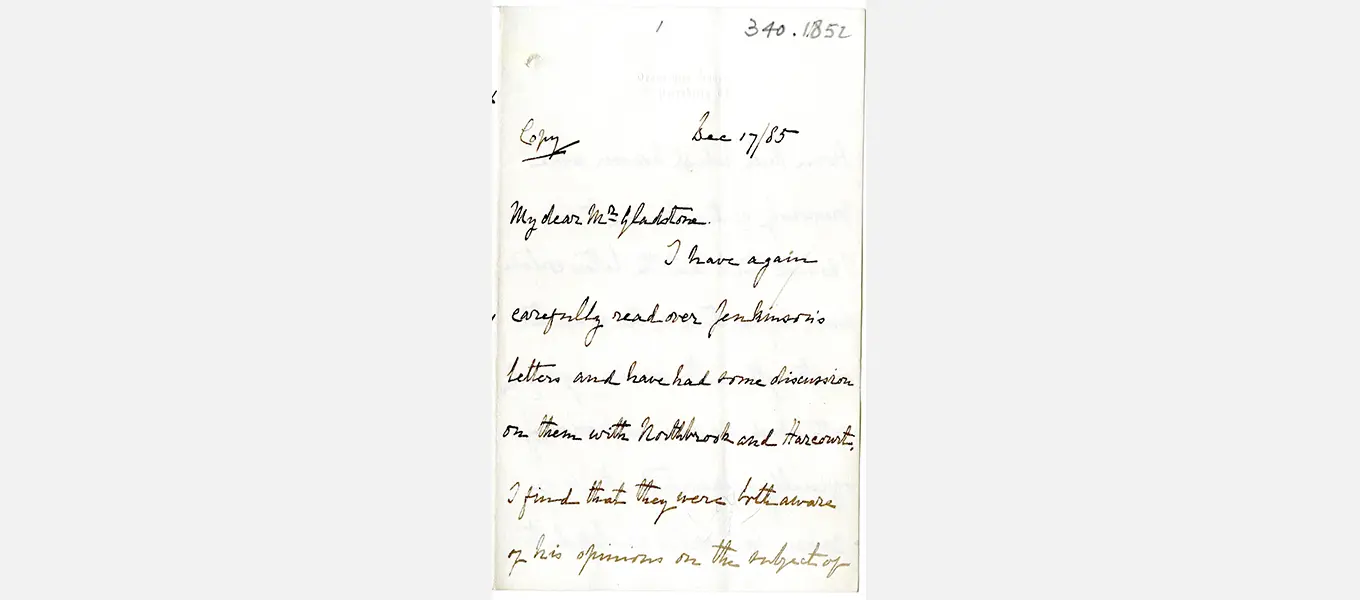 1
340.1852
Copy
Dec 17/85
My dear Mr Gladstone.
I have again
carefully read over Jenkinson's
letters and have had some discussion
on them with Northbrook and Harcourt.
I find that they were both aware
of his opinions on the subject of